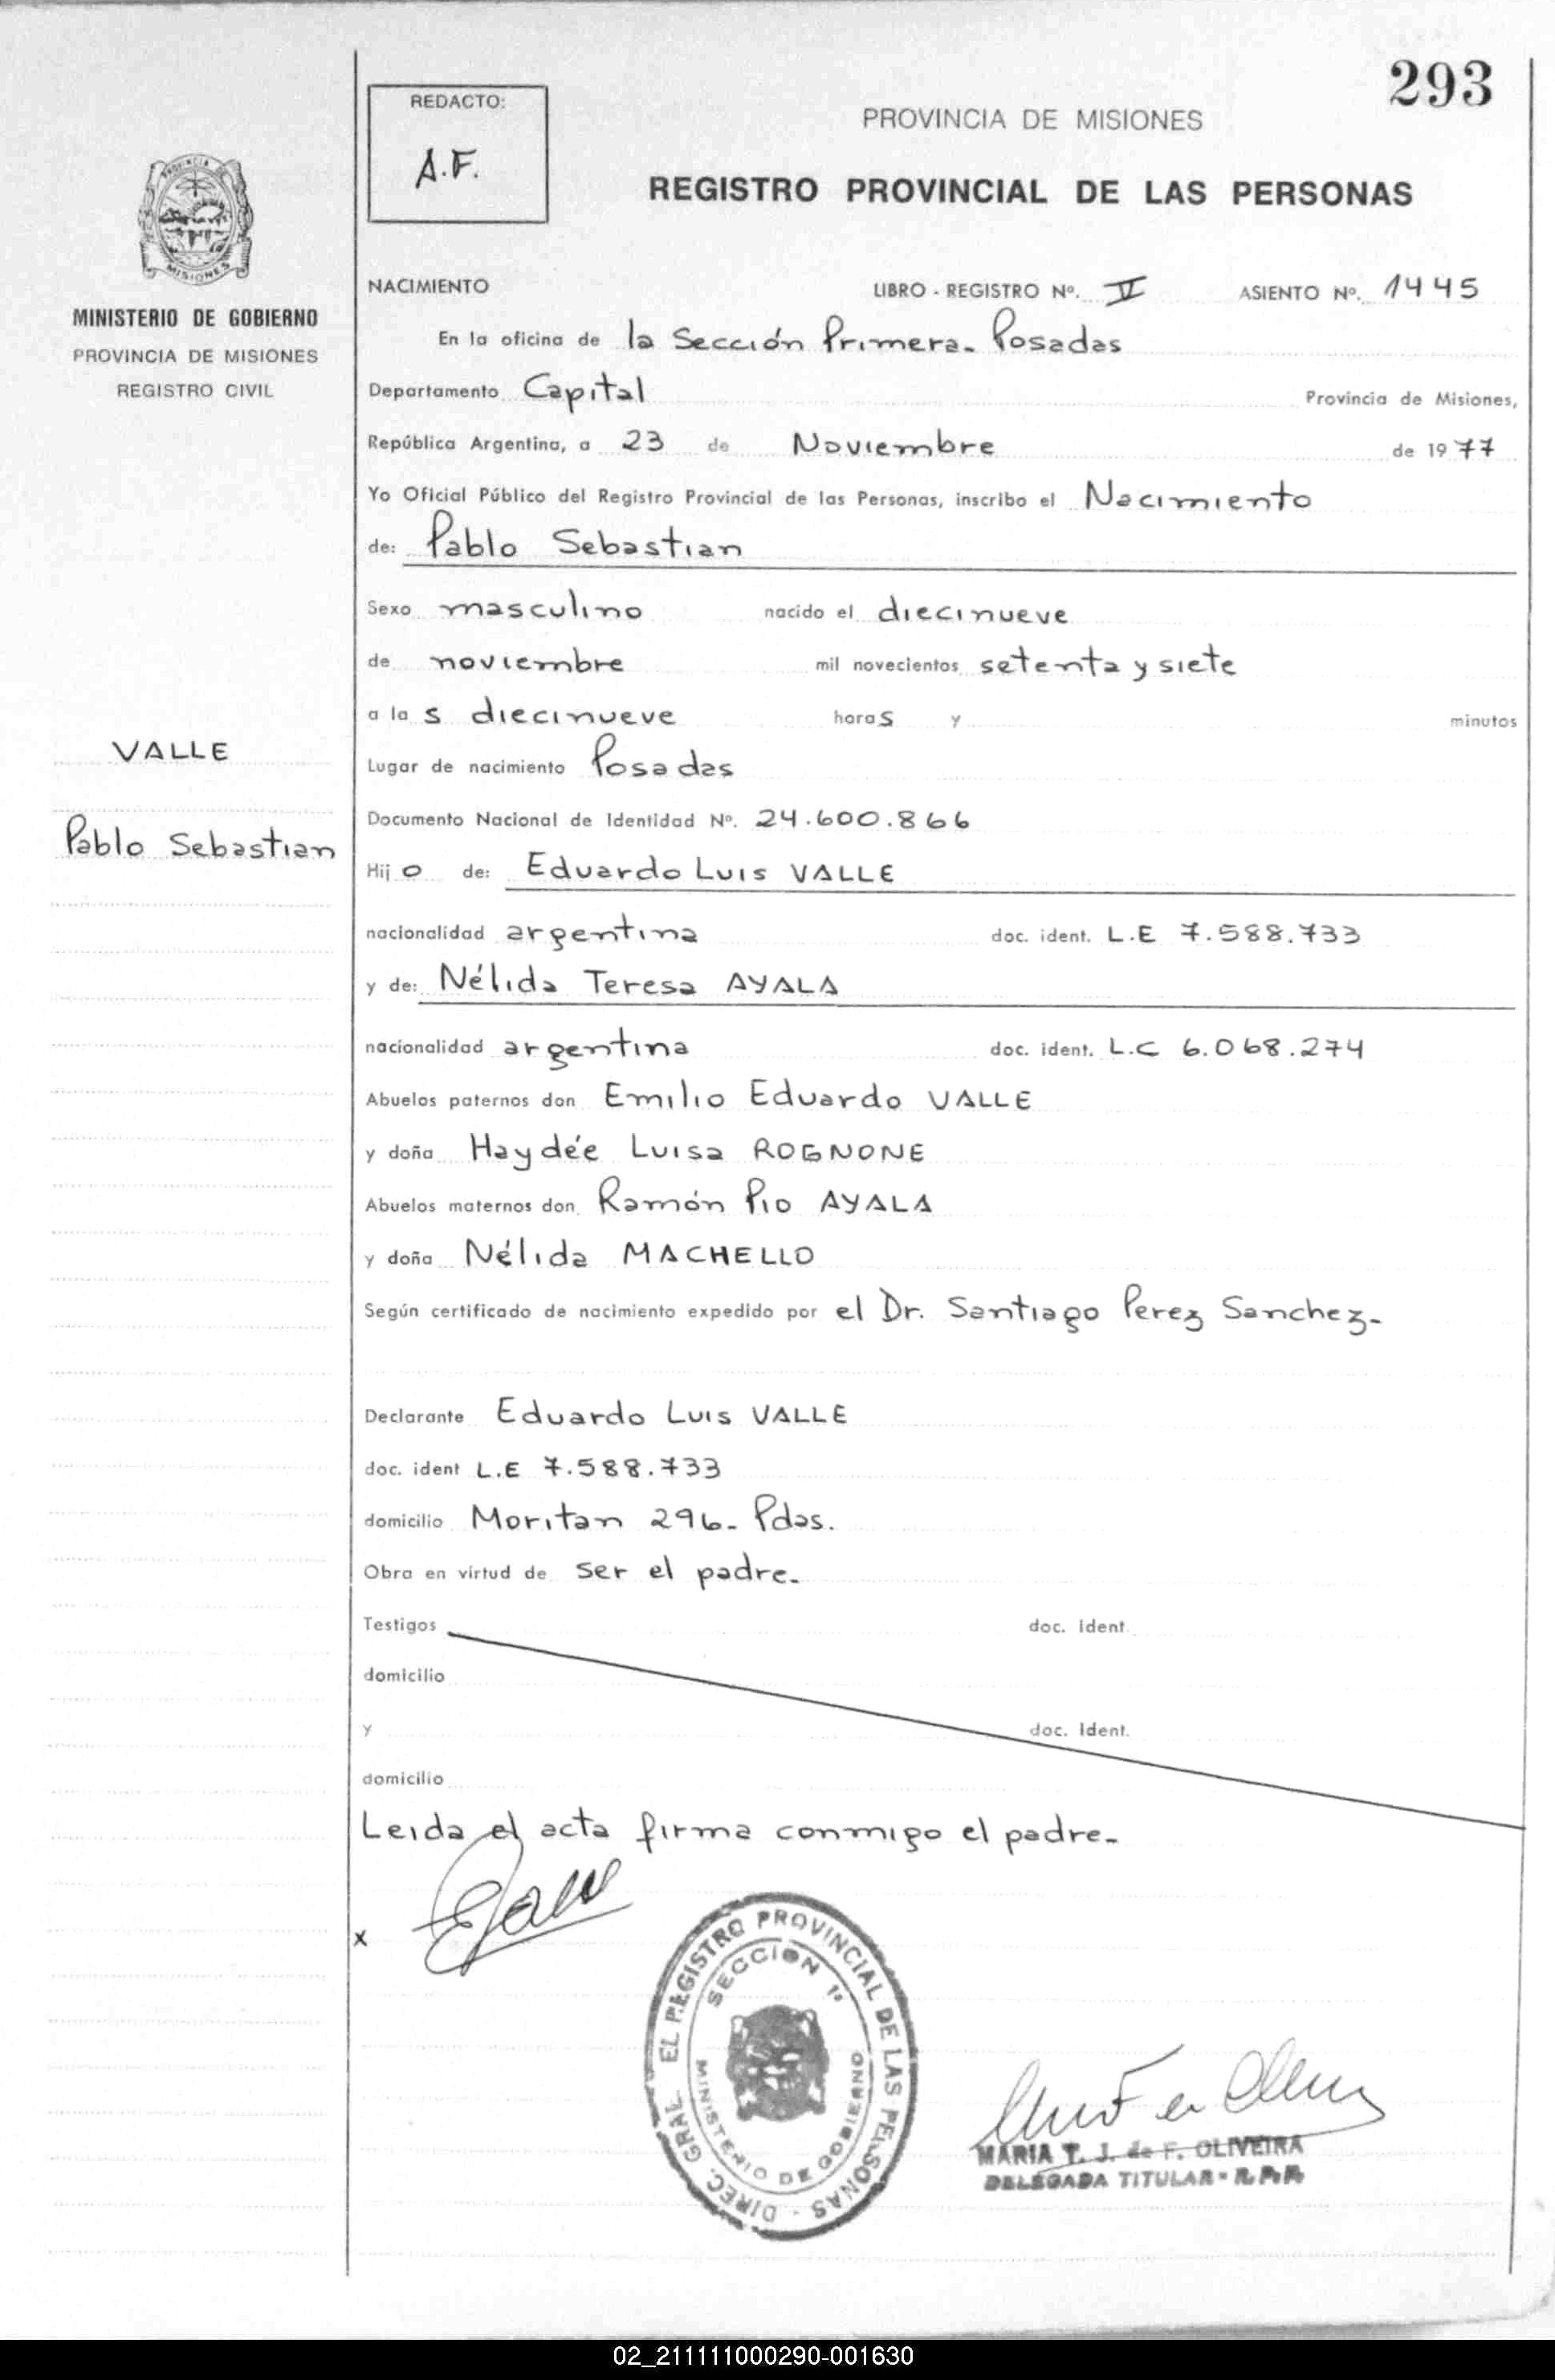 293
REDACTO:
A.F.
PROVINCIA DE MISIONES
REGISTRO PROVINCIAL DE LAS PERSONAS
PROVINCIA
MISIONES
MINISTERIO DE GOBIERNO
PROVINCIA DE MISIONES
REGISTRO CIVIL
NACIMIENTO LIBRO - REGISTRO Nº. V ASIENTO Nº. 1445
En la oficina de la Sección Primera. Posadas
Departamento Capital Provincia de Misiones,
República Argentina, a 23 de Noviembre de 1977
Yo Oficial Público del Registro Provincial de las Personas, inscribo el Nacimiento
de: Pablo Sebastian
Sexo masculino nacido el diecinueve
de noviembre mil novecientos setenta y siete
a las diecinueve horas y minutos
VALLE
Lugar de nacimiento Posadas
Documento Nacional de Identidad Nº. 24.600.866
Pablo Sebastian
Hijo de: Eduardo Luis VALLE
nacionalidad argentina doc. ident. L.E 7.588.733
y de: Nélida Teresa AYALA
nacionalidad argentina doc. ident. L.C 6.068.274
Abuelos paternos don Emilio Eduardo VALLE
y doña Haydée Luisa ROGNONE
Abuelos maternos don Ramón Pio AYALA
y doña Nélida MACHELLO
Según certificado de nacimiento expedido por el Dr. Santiago Perez Sanchez-
Declarante Eduardo Luis VALLE
doc. ident L.E 7.588.733
domicilio Moritan 296- Pdas.
Obra en virtud de ser el padre-
Testigos doc. Ident
domicilio
y doc. Ident.
domicilio
Leida el acta firma conmigo el padre-
x
DIREC. GRAL EL REGISTRO PROVINCIAL DE LAS PERSONAS -
SECCION 1ª
MINISTERIO DE GOBIERNO
MARIA T. J. de F. OLIVEIRA
DELEGADA TITULAR - R.P.P.
02_211111000290-001630